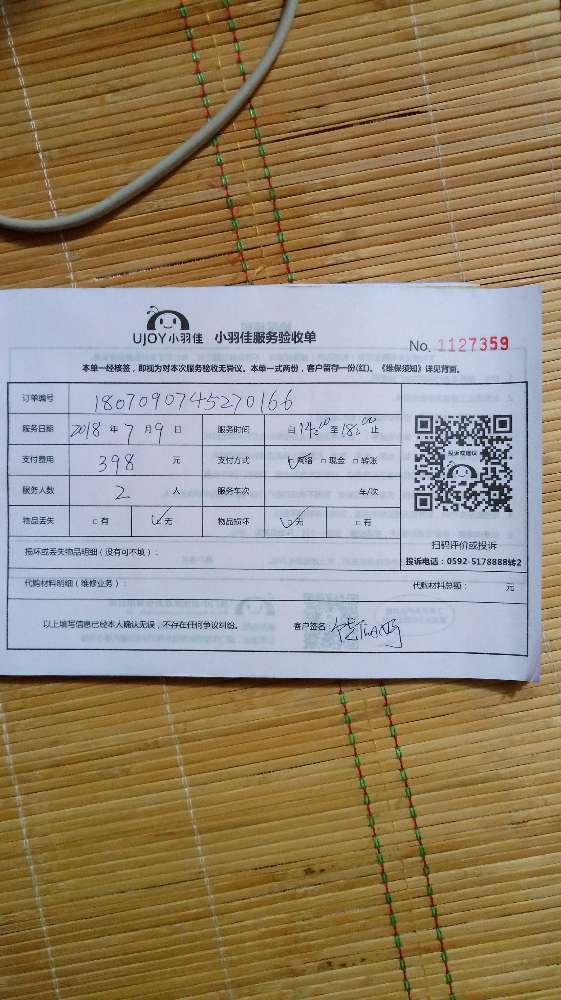 UJOY小羽佳 小羽佳服务验收单
No. 1127359
本单一经核签，即视为对本次服务验收无异议。本单一式两份，客户留存一份(红)。《维保须知》详见背面。
订单编号 1807090745270166
服务日期 2018 年 7 月 9 日 服务时间 自 14:00 至 18:00 止
支付费用 398 元 支付方式 ☑网络 □现金 □转账
投诉或建议
服务人数 2 人 服务车次 车/次
物品丢失 □有 ☑无 物品损坏 ☑无 □有
扫码评价或投诉
损坏或丢失物品明细（没有可不填）：
投诉电话：0592-5178888转2
代购材料明细（维修业务）： 代购材料总额： 元
以上填写信息已经本人确认无误，不存在任何争议纠纷。 客户签名：